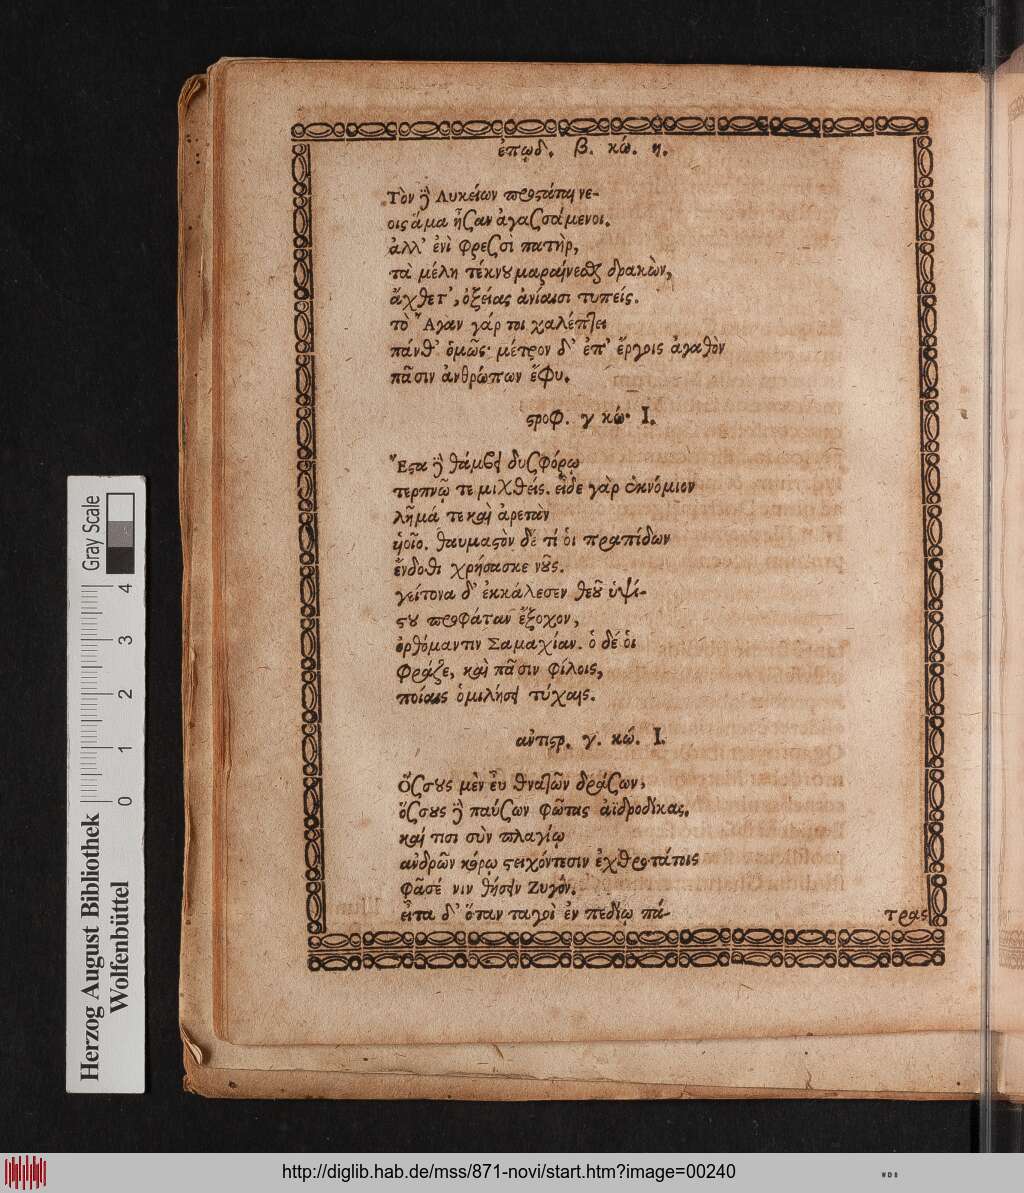 ἐπῳδ. β. κώ. η.
Τὸν δὲ Λυκείων προστάτῃ νε-
οις ἅμα ἦζαν ἀγαζσάμενοι.
ἀλλ' ἐνὶ φρεζσὶ πατὴρ,
τὰ μέλη τέκνου δρακὼν,
ἄχθετ', ὀξείας ἀνίαισι τυπείς.
τὸ Ἄγαν γάρ τοι χαλέπτει
πάνθ' ὁμῶς· μέτρον δ' ἐπ' ἔργοις ἀγαθὸν
πᾶσιν ἀνθρώπων ἔφυ.
στροφ. γ κώ· Ι.
Ἔστα δὲ θάμβει δυζφόρῳ
τερπνῷ τε μιχθείς. εἶδε γὰρ ἐκνόμιον
λῆμά τε καὶ ἀρετὰν
ὑιοῖο. θαυμαστὸν δέ τί οἱ πραπίδων
ἔνδοθι χρήσασκε νοῦς.
γείτονα δ' ἐκκάλεσεν θεοῦ ὑψί-
στου προφάταν ἔξοχον,
ὀρθόμαντιν Σαμαχίαν. ὁ δέ οἱ
φράζε, καὶ πᾶσιν φίλοις,
ποίαις ὁμιλήσει τύχαις.
ἀντιστρ. γ. κώ. Ι.
Ὅζσους μὲν ἐν θνατῶν δράζων,
ὅζσους δὲ παύζων φῶτας ἀϊδροδίκας.
καί τισι σὺν πλαγίῳ
ἀνδρῶν κόρῳ στειχόντεσιν ἐχθροτάτοις
φᾶσέ νιν θήσειν Ζυγόν.
εἶτα δ' ὅταν ταγοὶ ἐν πεδίῳ πά-
τρας
Gray Scale
4
3
2
1
0
Herzog August Bibliothek
Wolfenbüttel
http://diglib.hab.de/mss/871-novi/start.htm?image=00240